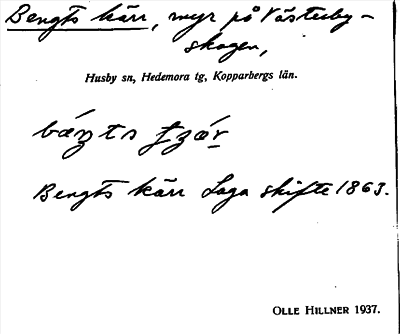 Bengts kärr, myr på Västerby-
skogen,
Husby sn, Hedemora tg, Kopparbergs län.
Bengts kärr Laga skifte 1863.
OLLE HILLNER 1937.